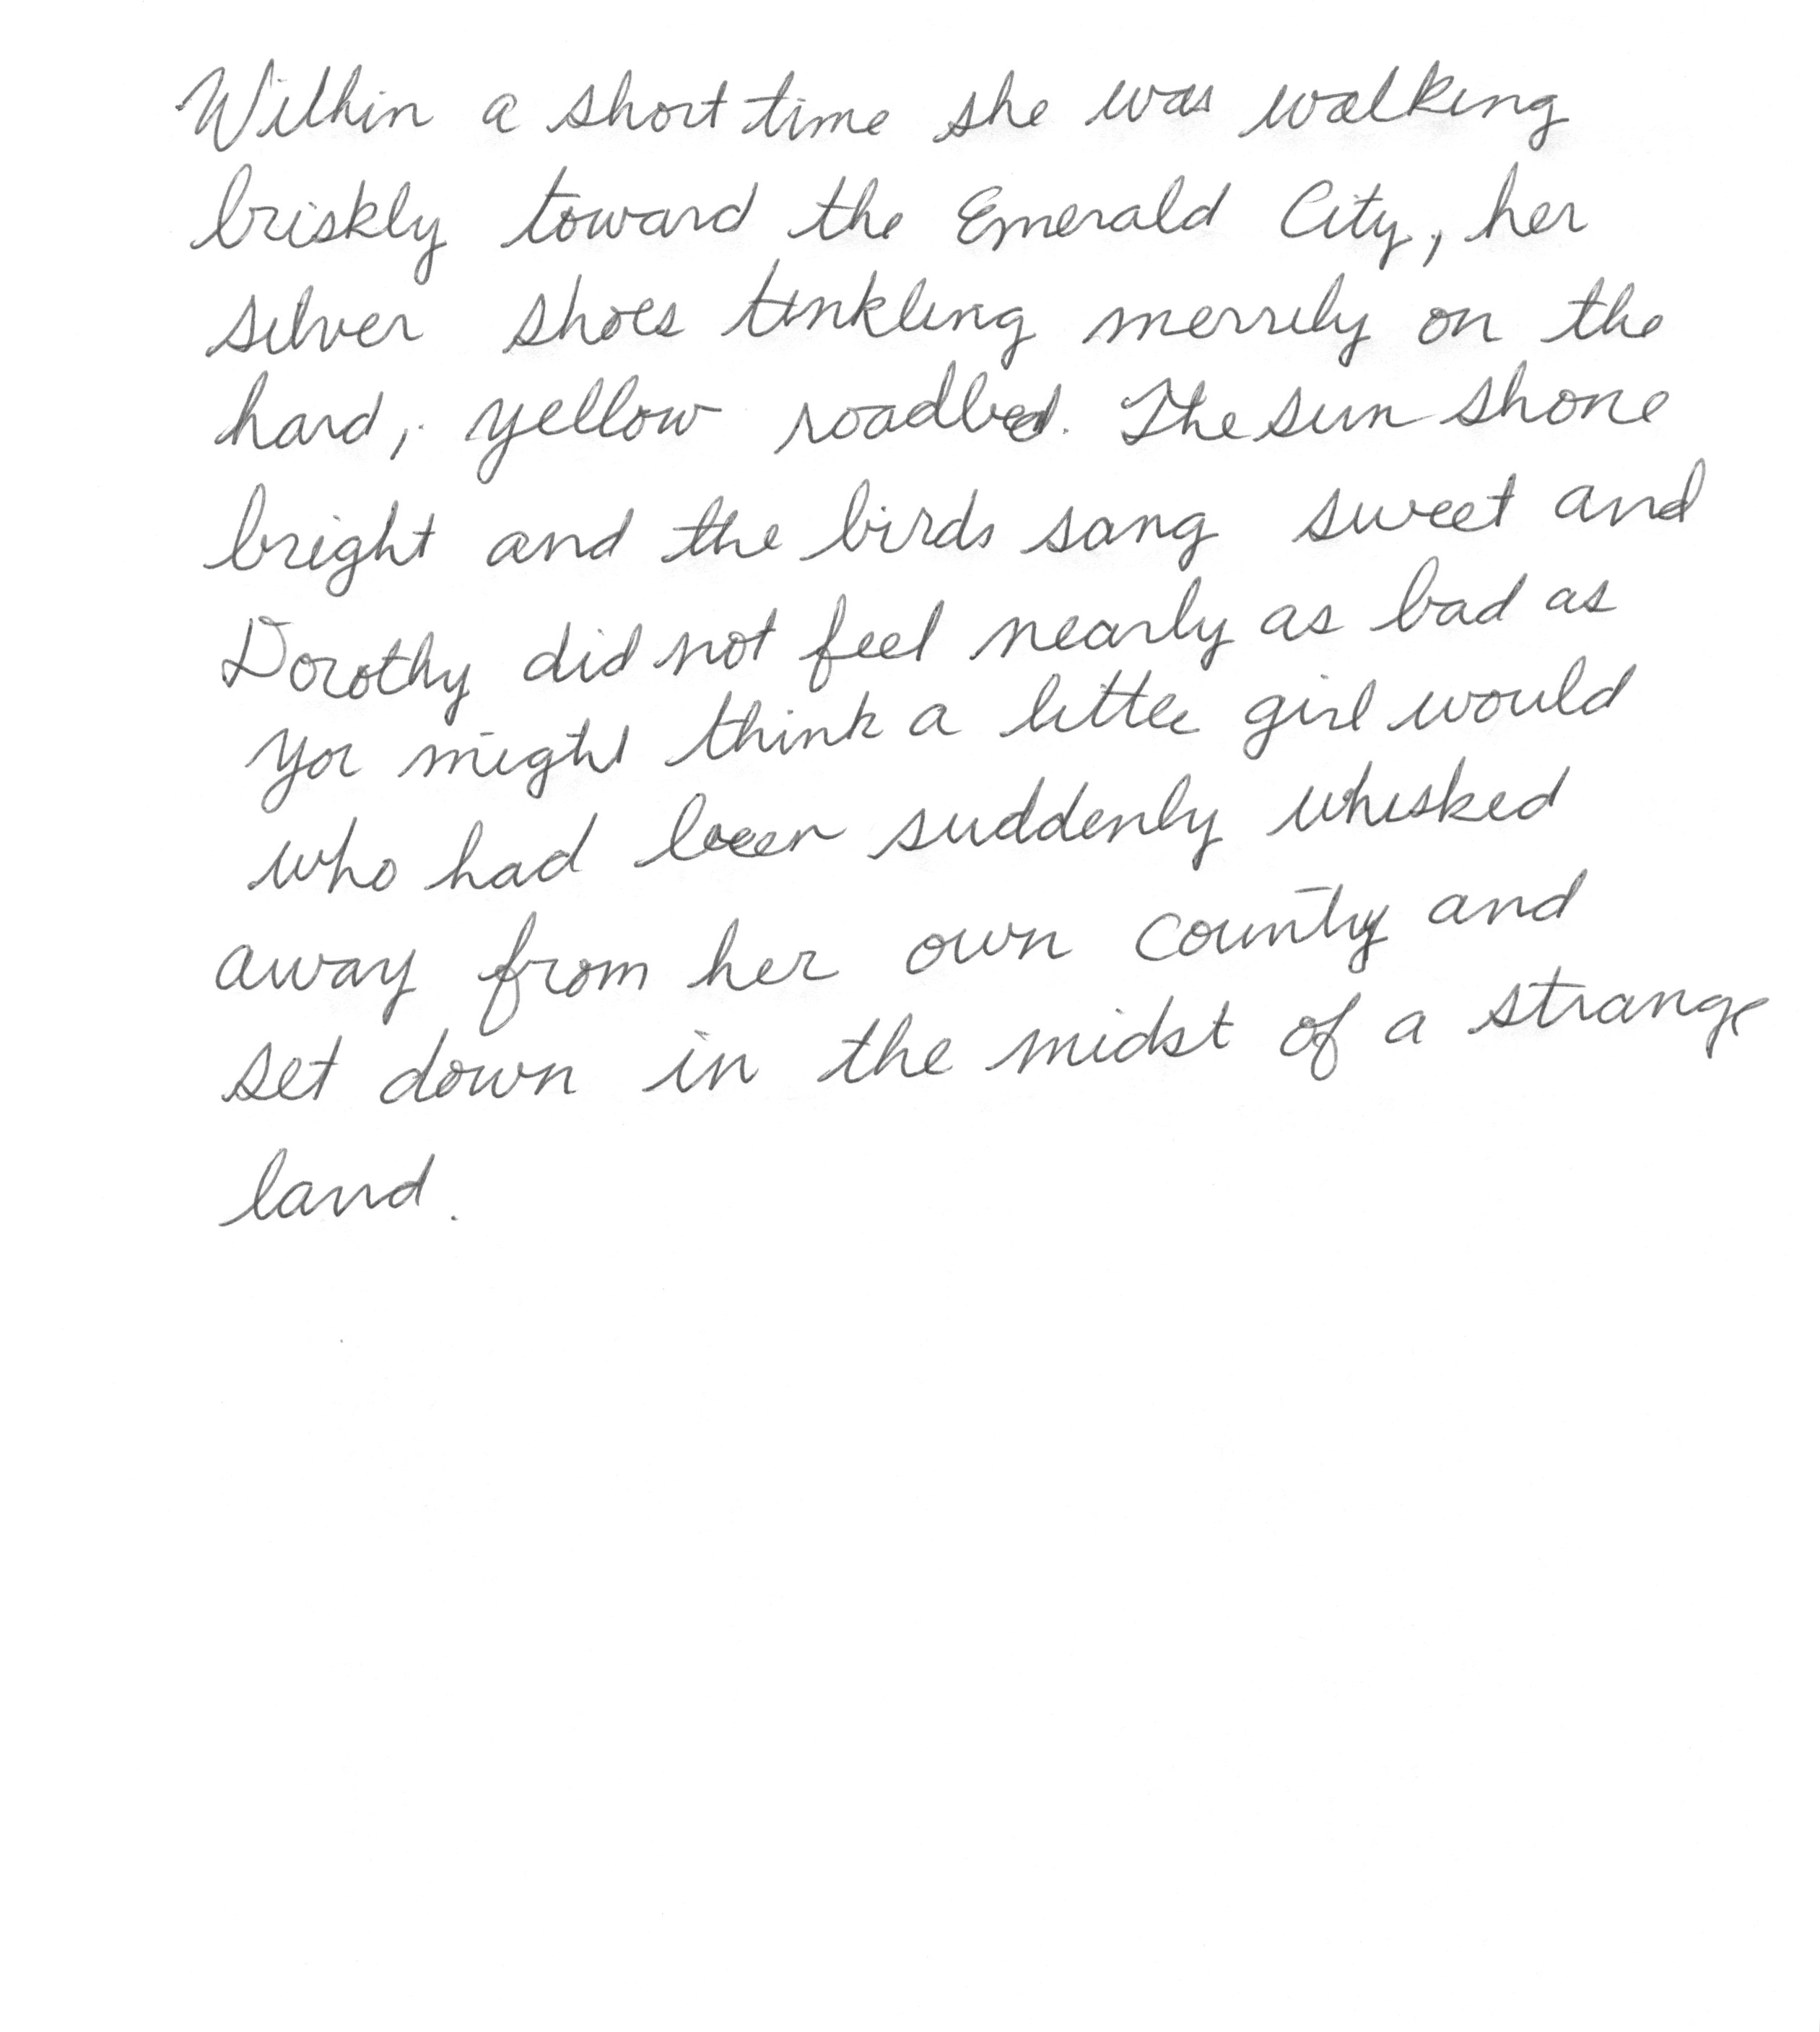 Within a short time she was walking
briskly toward the Emerald City, her
silver shoes tinkling merrily on the
hard, yellow roadbed. The sun shone
bright and the birds sang sweet and
Dorothy did not feel nearly as bad as
you might think a little girl would
who had been suddenly whisked
away from her own county and
set down in the midst of a strange
land.